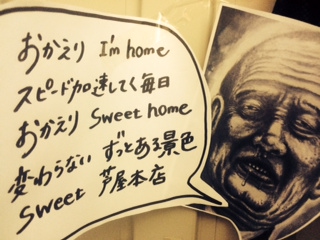 おかえり I'm home
スピード加速してく毎日
おかえり Sweet home
変わらない ずっとある景色
Sweet 芦屋本店